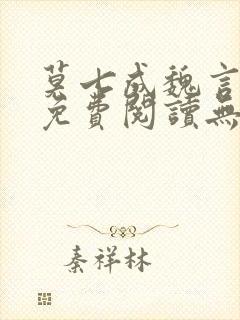 莫七成魏言
免費閱讀無
秦祥林